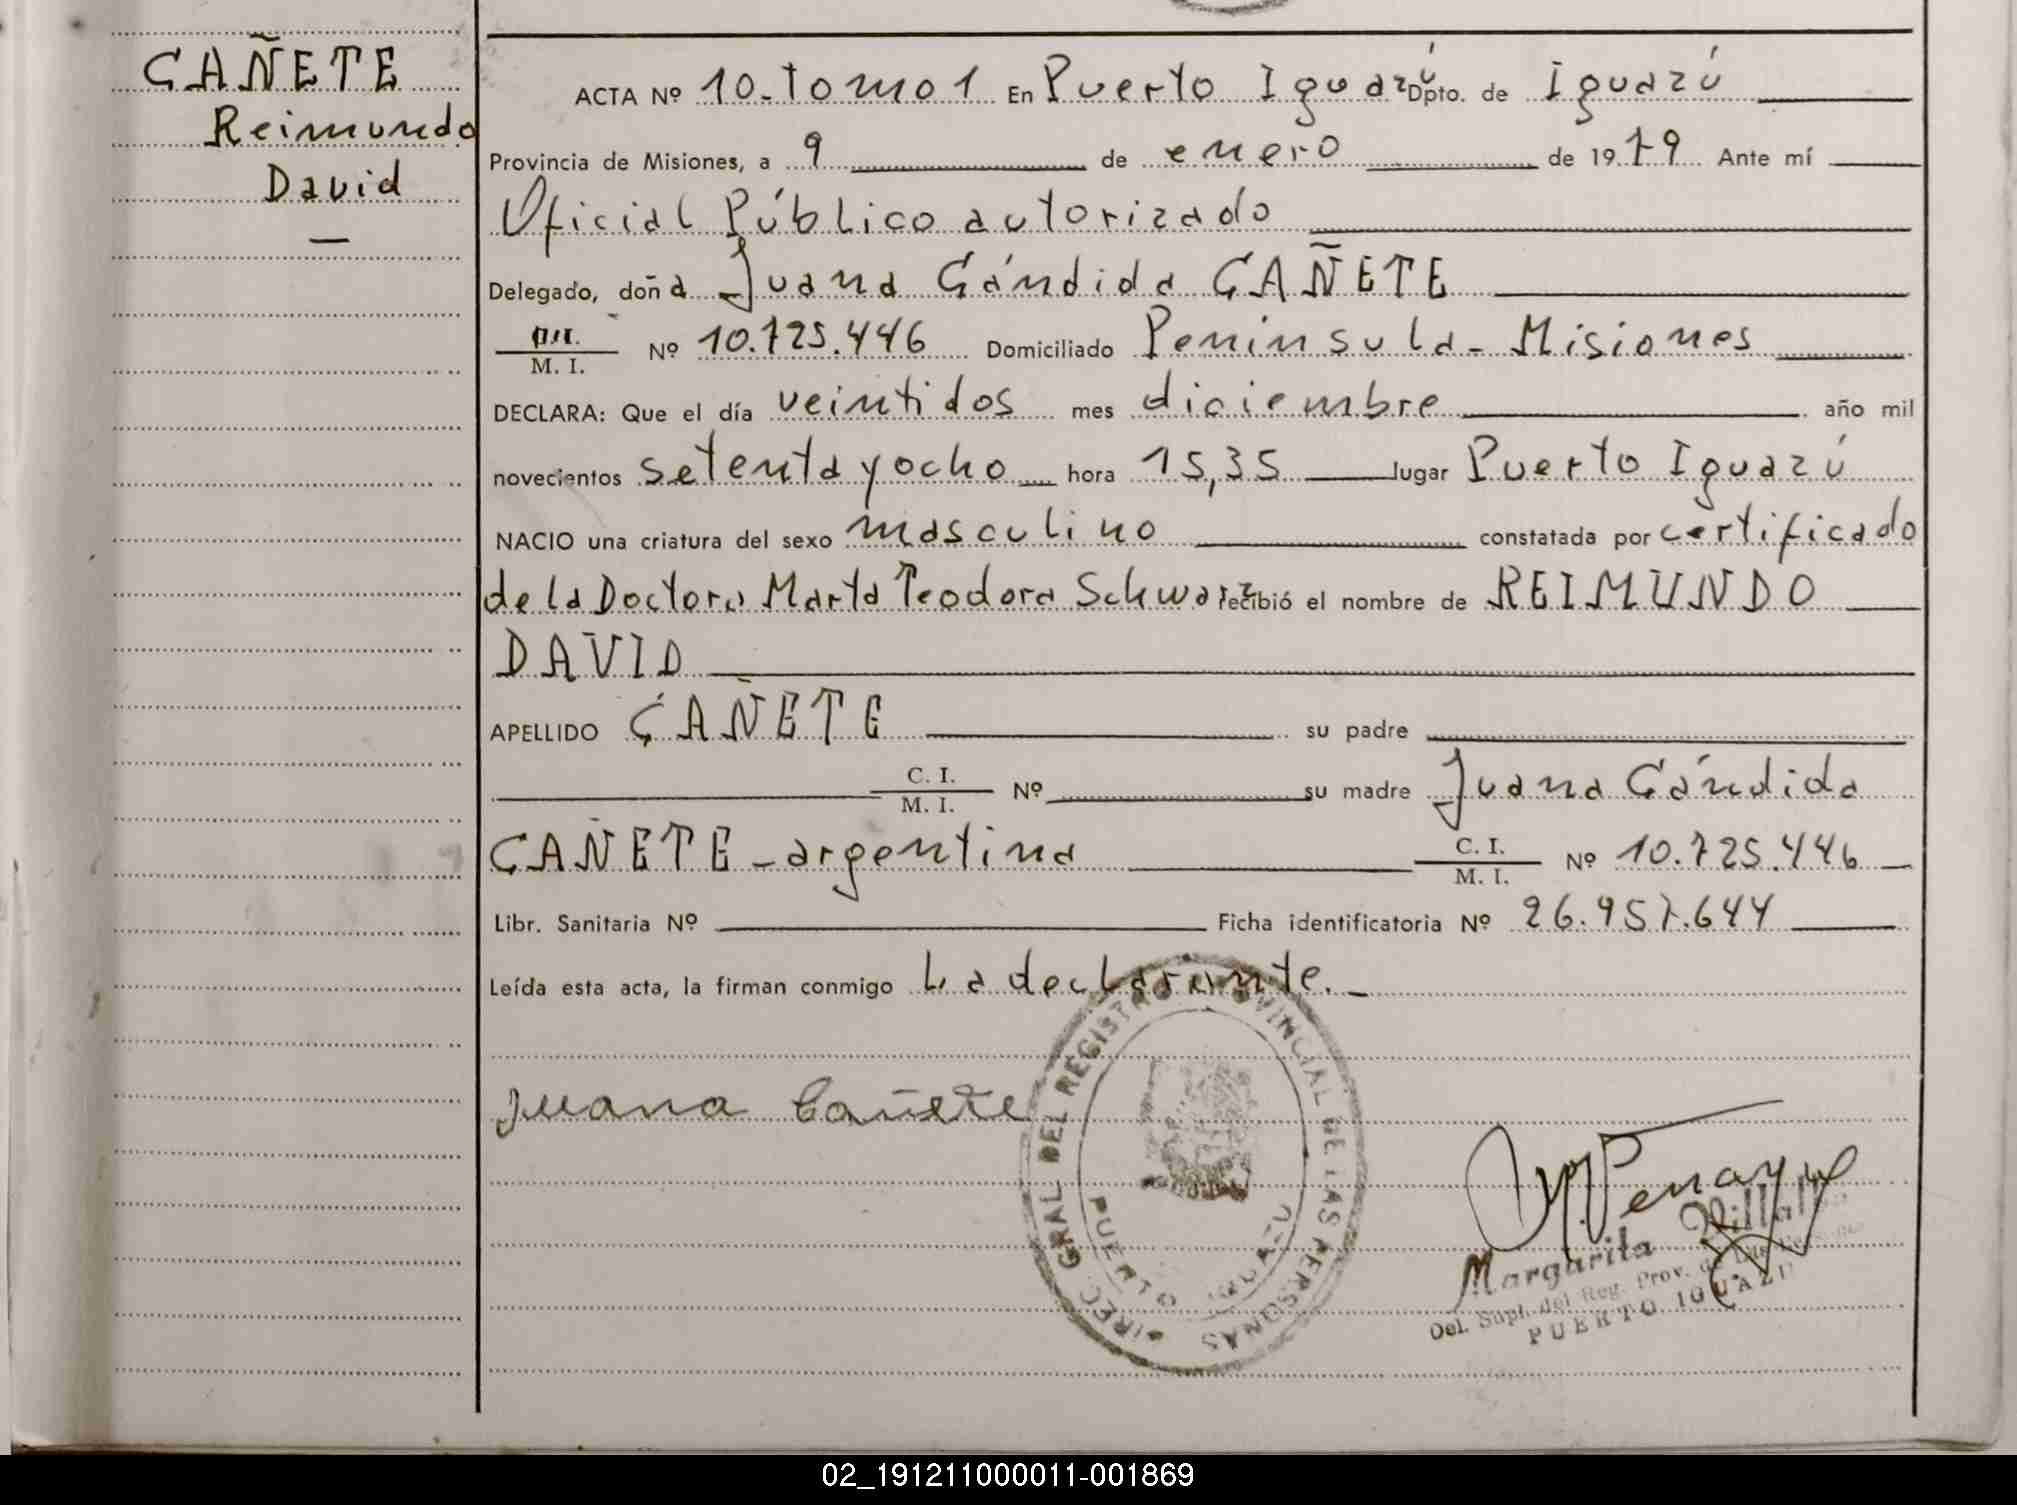 CAÑETE
Reimundo
David
ACTA Nº 10. tomo 1 En Puerto Iguazú Dpto. de Iguazú
Provincia de Misiones, a 9 de enero de 1979 Ante mí
Oficial Público autorizado
Delegado, doña Juana Cándida CAÑETE
M. I. Nº 10.725.446 Domiciliado Península - Misiones
DECLARA: Que el día veintidos mes diciembre año mil
novecientos setenta y ocho hora 15,35 lugar Puerto Iguazú
NACIO una criatura del sexo masculino constatada por certificado
de la Doctora Marta Teodora Schwarz recibió el nombre de REIMUNDO
DAVID
APELLIDO CAÑETE su padre
C. I. M. I. Nº su madre Juana Cándida
CAÑETE - argentina C. I. M. I. Nº 10.725.446
Libr. Sanitaria Nº Ficha identificatoria Nº 26.957.644
Leída esta acta, la firman conmigo La declarante. -
Juana Cañete
DIREC. GRAL DEL REGISTRO PROVINCIAL DE LAS PERSONAS
PUERTO IGUAZU
Margarita
Del. Supl. del Reg. Prov. de las Personas
PUERTO IGUAZU
02_191211000011-001869